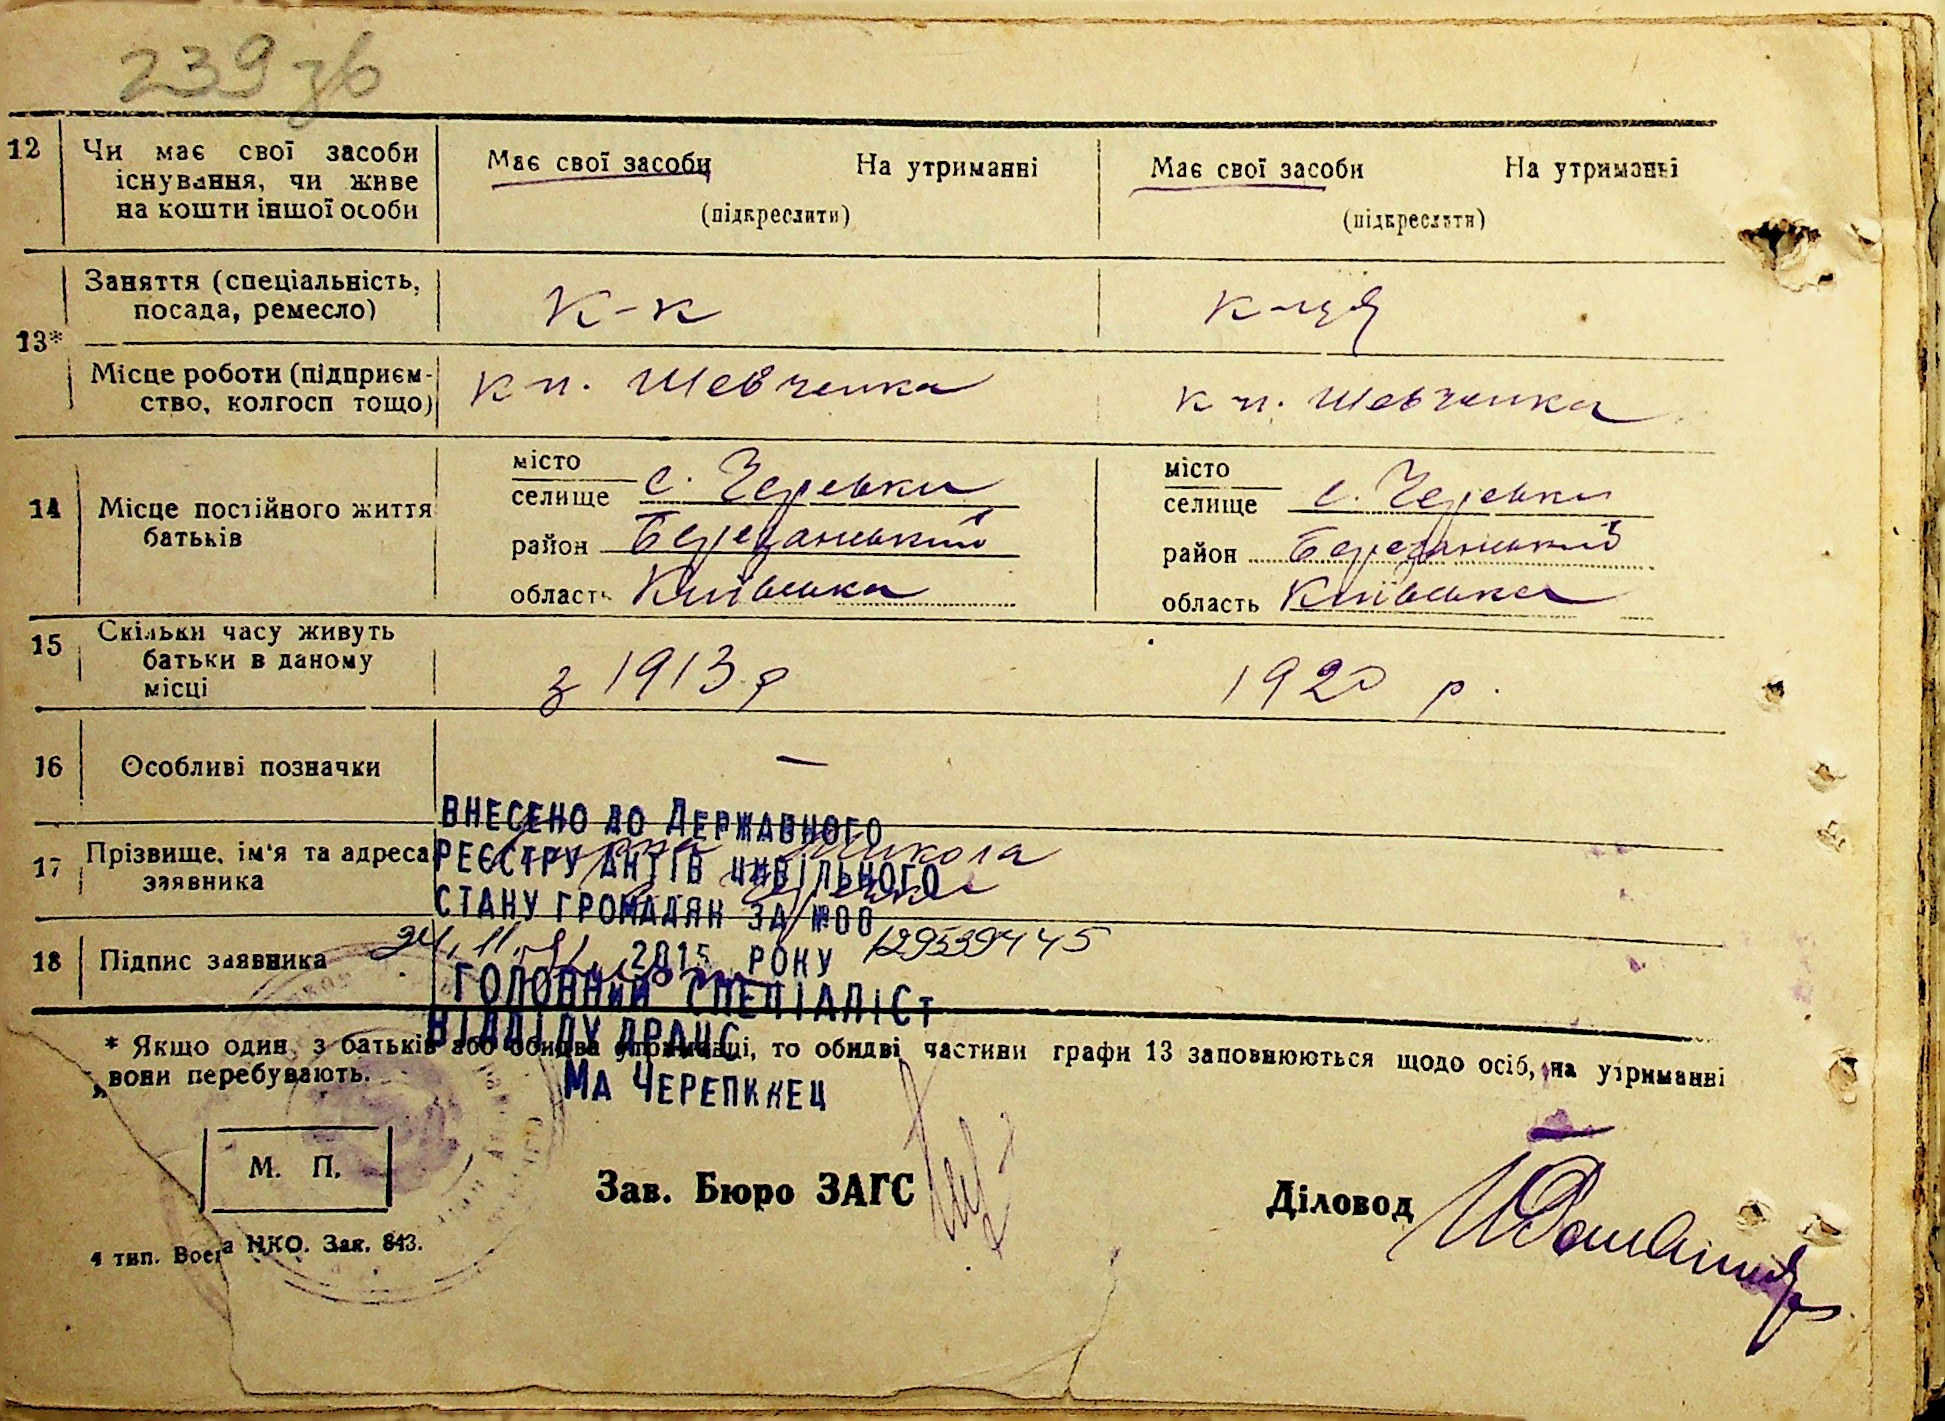 239 зв
12 Чи має свої засоби існування, чи живе на кошти іншої особи
Має свої засоби На утриманні
(підкреслити)
Має свої засоби На утриманні
(підкреслити)
13*
Заняття (спеціальність, посада, ремесло)
к-к
к-ця
Місце роботи (підприєм-
ство, колгосп тощо)
к-п. Шевченка
к-п. Шевченка
14 Місце постійного життя
батьків
місто
селище с.
район Березанський
область Київська
місто
селище с.
район Березанський
область Київська
15 Скільки часу живуть
батьки в даному
місці
з 1913 р
1920 р.
16 Особливі позначки
—
17 Прізвище, ім'я та адреса
заявника
Микола
18 Підпис заявника
ВНЕСЕНО ДО ДЕРЖАВНОГО
РЕЄСТРУ АКТІВ ЦИВІЛЬНОГО
СТАНУ ГРОМАДЯН ЗА №00
24.11. 2015 РОКУ 129539445
ГОЛОВНИЙ СПЕЦІАЛІСТ
ВІДДІЛУ ДРАЦС
МА ЧЕРЕПИНЕЦ
* Якщо один з батьків або обидва утриманці, то обидві частини графи 13 заповнюються щодо осіб, на утриманні
вони перебувають.
М. П.
Зав. Бюро ЗАГС
Діловод
4 тип. НКО. Зак. 843.